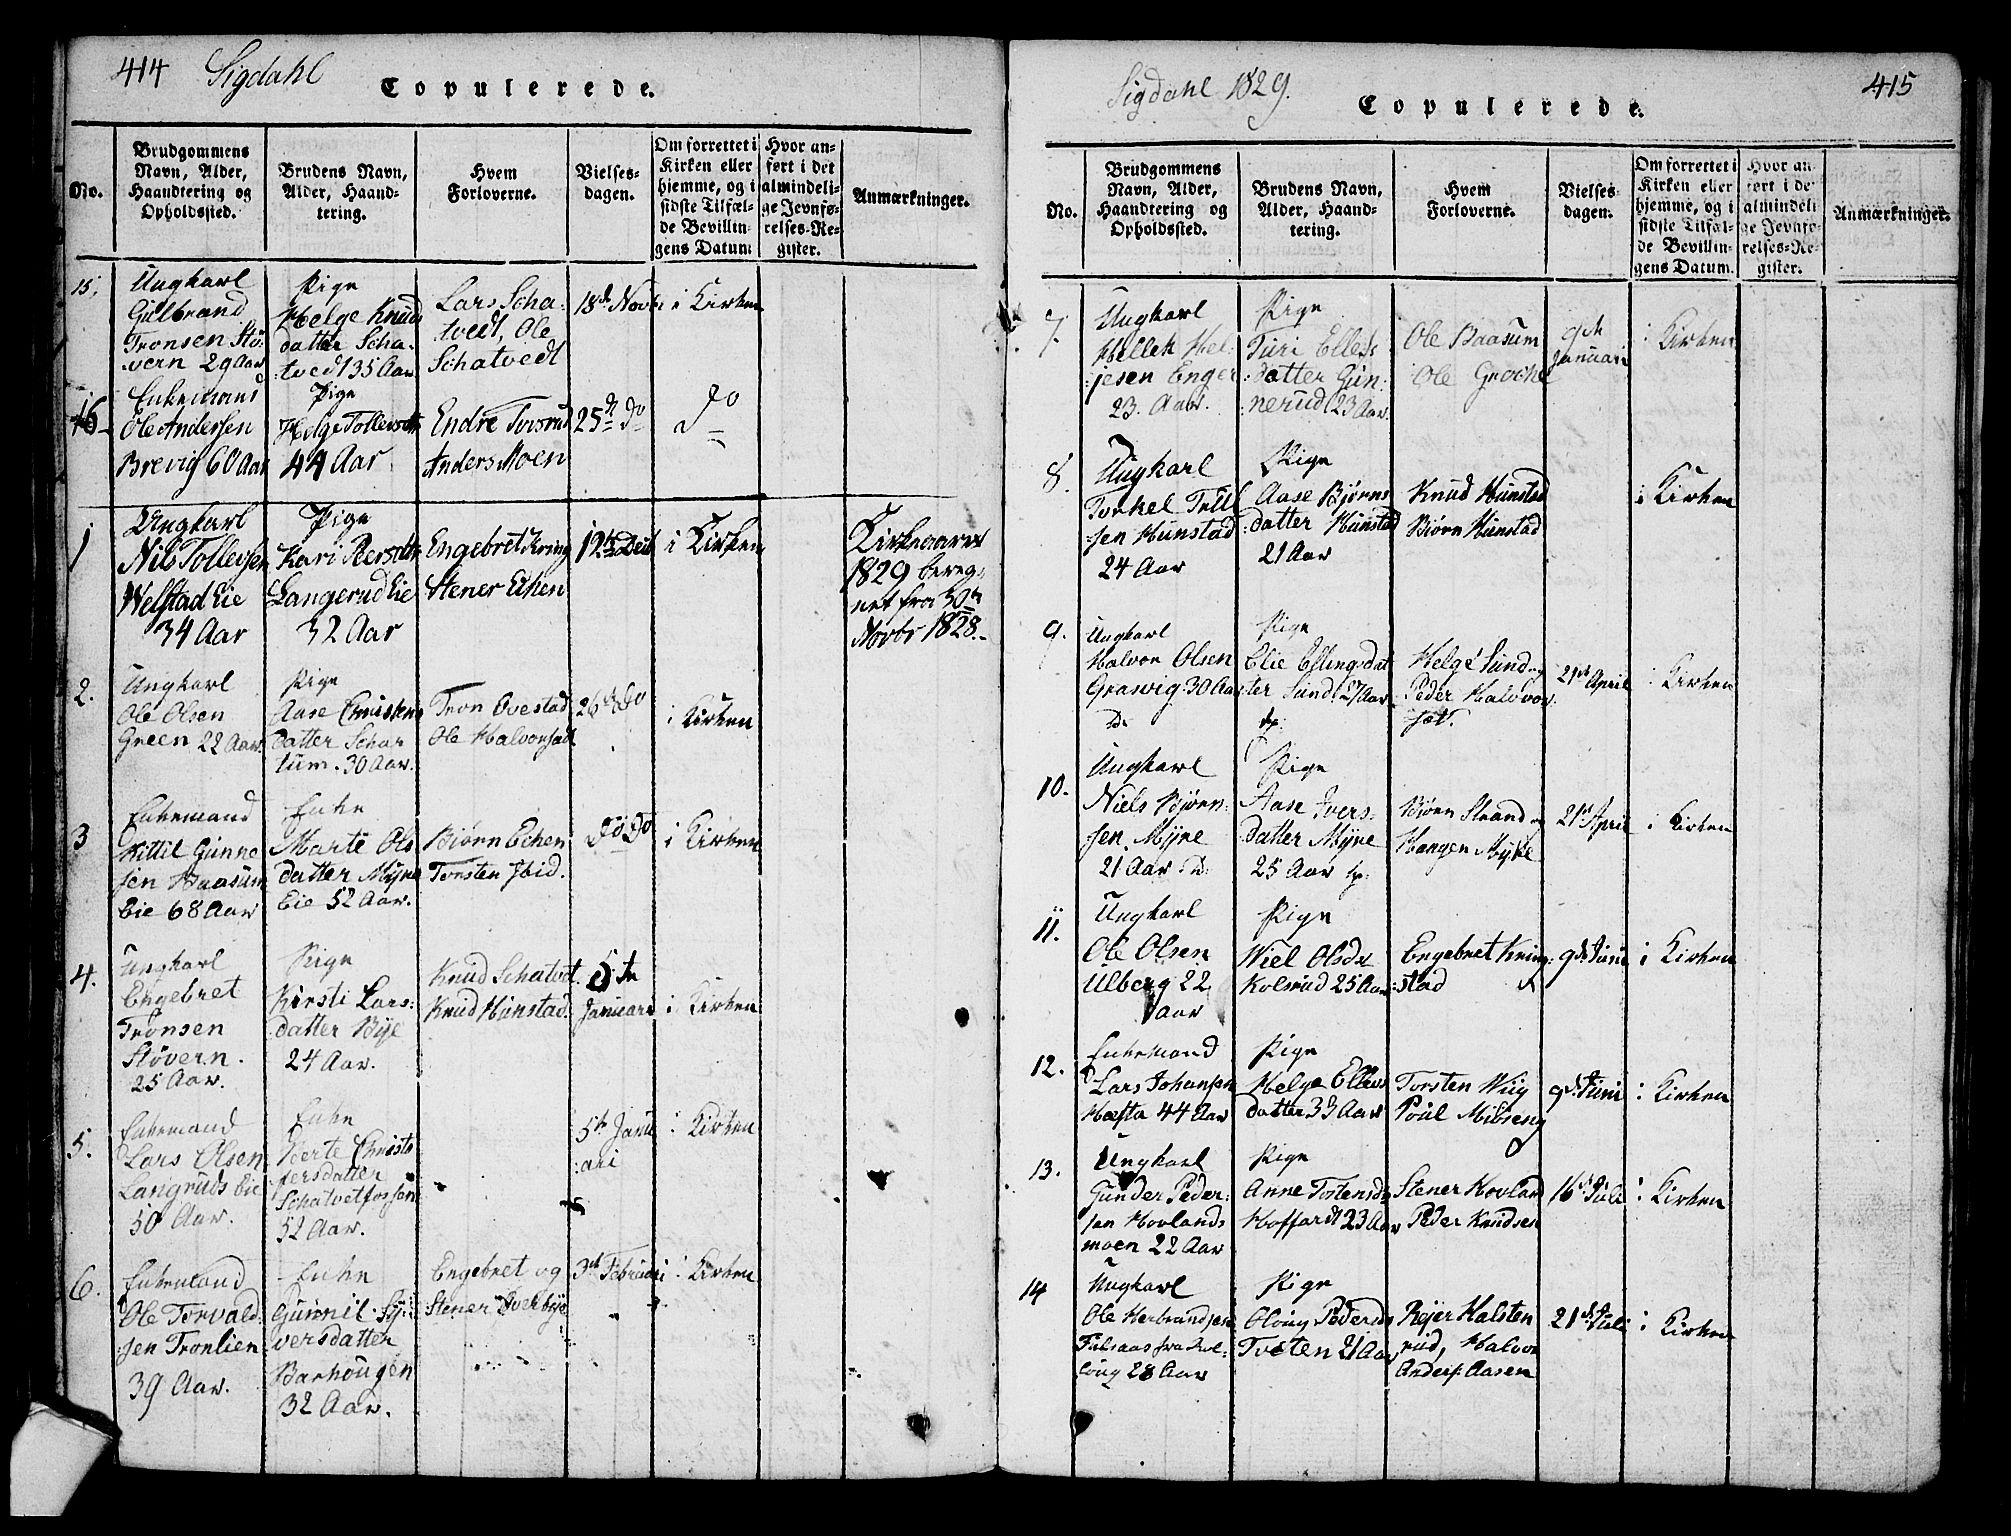 414 Sigdahl
Copulerede.
No.
Brudgommens
Navn, Alder,
Haandtering og
Opholdssted.
Brudens Navn,
Alder, Haand-
tering.
Hvem
Forloverne.
Vielses-
dagen.
Om forrettet i
Kirken eller
hjemme, og i
sidste Tilfæl-
de Bevillin-
gens Datum:
Hvor an-
ført i det
almindeli-
ge Jevnfø-
relses-Re-
gister.
Anmærkninger.
15.
Ungkarl
Gulbrand
Tronsen Stö-
vern 29 Aar
Pige
Helge Knuds
datter Scha-
tvedt 35 Aar
Lars Scha-
tvedt, Ole
Schatvedt
18de Novbr
i Kirken
16
Enkemand
Ole Andersen
Brevig 60 Aar
Pige
Helge Tollevsdtr
44 Aar
Endre Tovsrud
Anders Moen
25de do
do
1
Ungkarl
Nils Tollevsen
Welstad Eie
34 Aar
Pige
Kari Persdtr
Langerud Eie
32 Aar
Engebret Kring
Stener Eken
12te Decbr
i Kirken
Kirkeaaret
1829 bereg-
net fra 30te
Novbr 1828.
2.
Ungkarl
Ole Olsen
Green 22 Aar.
Pige
Aase Christens
datter Schar
tum. 30 Aar.
Tron Ovestad
Ole Halvorsad
26de do
i Kirken
3
Enkemand
Kittil Gunne
sen Baasum
Eie 68 Aar
Enke
Marte Ols
datter Myne
Eie 52 Aar.
Biörn Echen
Torsten Ibid.
do do
i Kirken
4.
Ungkarl
Engebret
Tronsen
Stövern.
25 Aar.
Pige
Kirsti Lars:
datter Bye
24 Aar.
Knud Schatvet.
Knud Hunstad.
5te
Januari
i Kirken
5.
Enkemand
Lars Olsen
Langruds Eie
50 Aar.
Enke
Berte Christo
fersdatter
Schatvetfossen
52 Aar.
5te Janu
:ari
i Kirken
6.
Enkemand
Ole Torvald
:sen Tronlien
39 Aar.
Enke
Gunnil Sy:
versdatter
Barhougen
32 Aar.
Engebret og
Stener Overbye
3de Februari
i Kirken
Sigdahl 1829.
Copulerede.
415
No.
Brudgommens
Navn, Alder,
Haandtering og
Opholdssted.
Brudens Navn,
Alder, Haand-
tering.
Hvem
Forloverne.
Vielses-
dagen.
Om forrettet i
Kirken eller
hjemme, og i
sidste Tilfæl-
de Bevillin-
gens Datum.
Hvor an-
ført i de
almindeli
ge Jevnfø-
relses-Re-
gister.
Anmærkninger.
7.
Ungkarl
Hellek Hel:
:jesen Enger
23. Aar.
Pige
Turi Ellefs
:datter Gun:
:nerud 23 Aar.
Ole Baasum
Ole
9de
Januari
i Kirken
8.
Ungkarl
Torkel Trul
:sen Hunstad
24 Aar
Pige
Aase Bjørns
:datter Hunstad
21 Aar
Knud Hunstad
Biörn Hunstad
i Kirken
9.
Ungkarl
Halvor Olsen
Grawig 30 Aar
Pige
Elie Ellingsdat
ter Lund 27 Aar
Helge Lund og
Peder Halvor
set.
21de April
i Kirken
10.
Ungkarl
Niels Bjørn:
sen. Myne
21 Aar
Pige
Aase Ivers-
datter Myne
25 Aar
Bjørn Strand og
21de April
i Kirken
11.
Ungkarl
Ole Olsen
Ulberg 22
Aar
Pige
Olsdtr
Kolsrud 25 Aar
Engebret Kring:
:stad
9de Juni
i Kirken
12.
Enkemand
Lars Johansen
Hæsta 44 Aar
Pige
Helge Ellevs
datter 33 Aar
Torsten Wiig
Poul
9de Juni
i Kirken
13.
Ungkarl
Gunder Peder:
sen Hovlands
moen 22 Aar
Pige
Anne Tostensd.
Hoffardt 23 Aar
Stener Hovland
Peder Knudsen
16de Juli
i Kirken
14
Ungkarl
Ole Herbrandsen
28 Aar
Pige
Pedersd.
Tveten 21 Aar
Rejer Halsten
rud, Halvor
Anders. Aasen
21de Juli
i Kirken